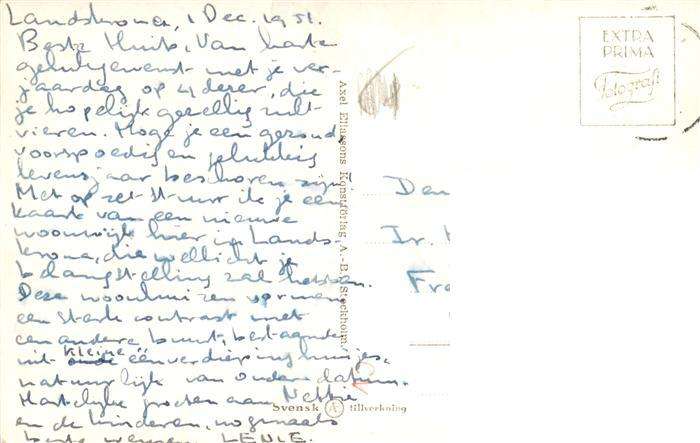 Landskrona, 1 Dec. 1951.
Beste Huib, Van harte
gelukgewenst met je ver-
jaardag op 4 dezer, die
je hopelijk gezellig zult
vieren. Moge je een gezond
voorspoedig en gelukkig
levensjaar beschoren zijn.
Met opzet stuur ik je een
kaart van een nieuwe
woonwijk hier in Lands-
krona, die wellicht je
belangstelling zal hebben.
Deze woonhuizen vormen
een sterk contrast met
een andere buurt, bestaande
uit kleine éénverdiepinghuisjes,
natuurlijk van oudere datum.
Hartelijke groeten aan Nettie
en de kinderen, nogmaals
beste wensen LENIE.
Axel Eliassons Konstförlag, A.-B. Stockholm.
Svensk Æ tillverkning
EXTRA
PRIMA
Fotografi
Den
Ir.
Fra